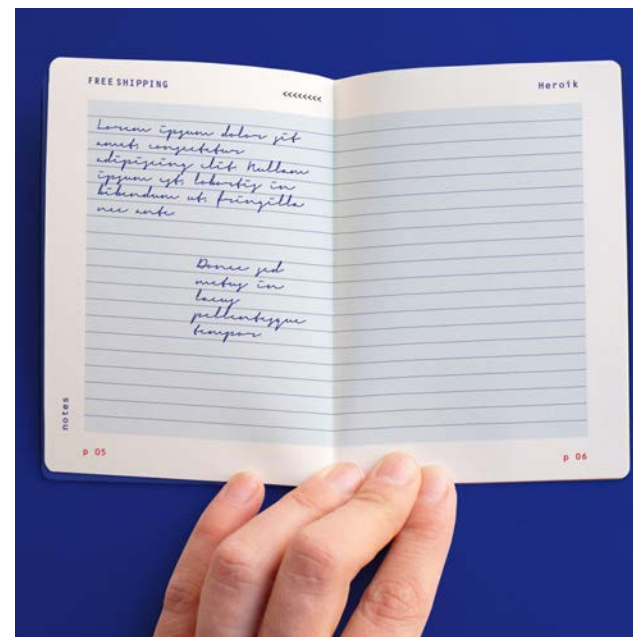 FREE SHIPPING
<<<<<<<<
Heroik
Lorem ipsum dolor sit
amet, consectetur
adipiscing elit Nullam
ipsum est, lobortis in
bibendum ut, fringilla
nec ante
Donec sed
metus in
lacus
pellentesque
tempor
notes
p 05
p 06